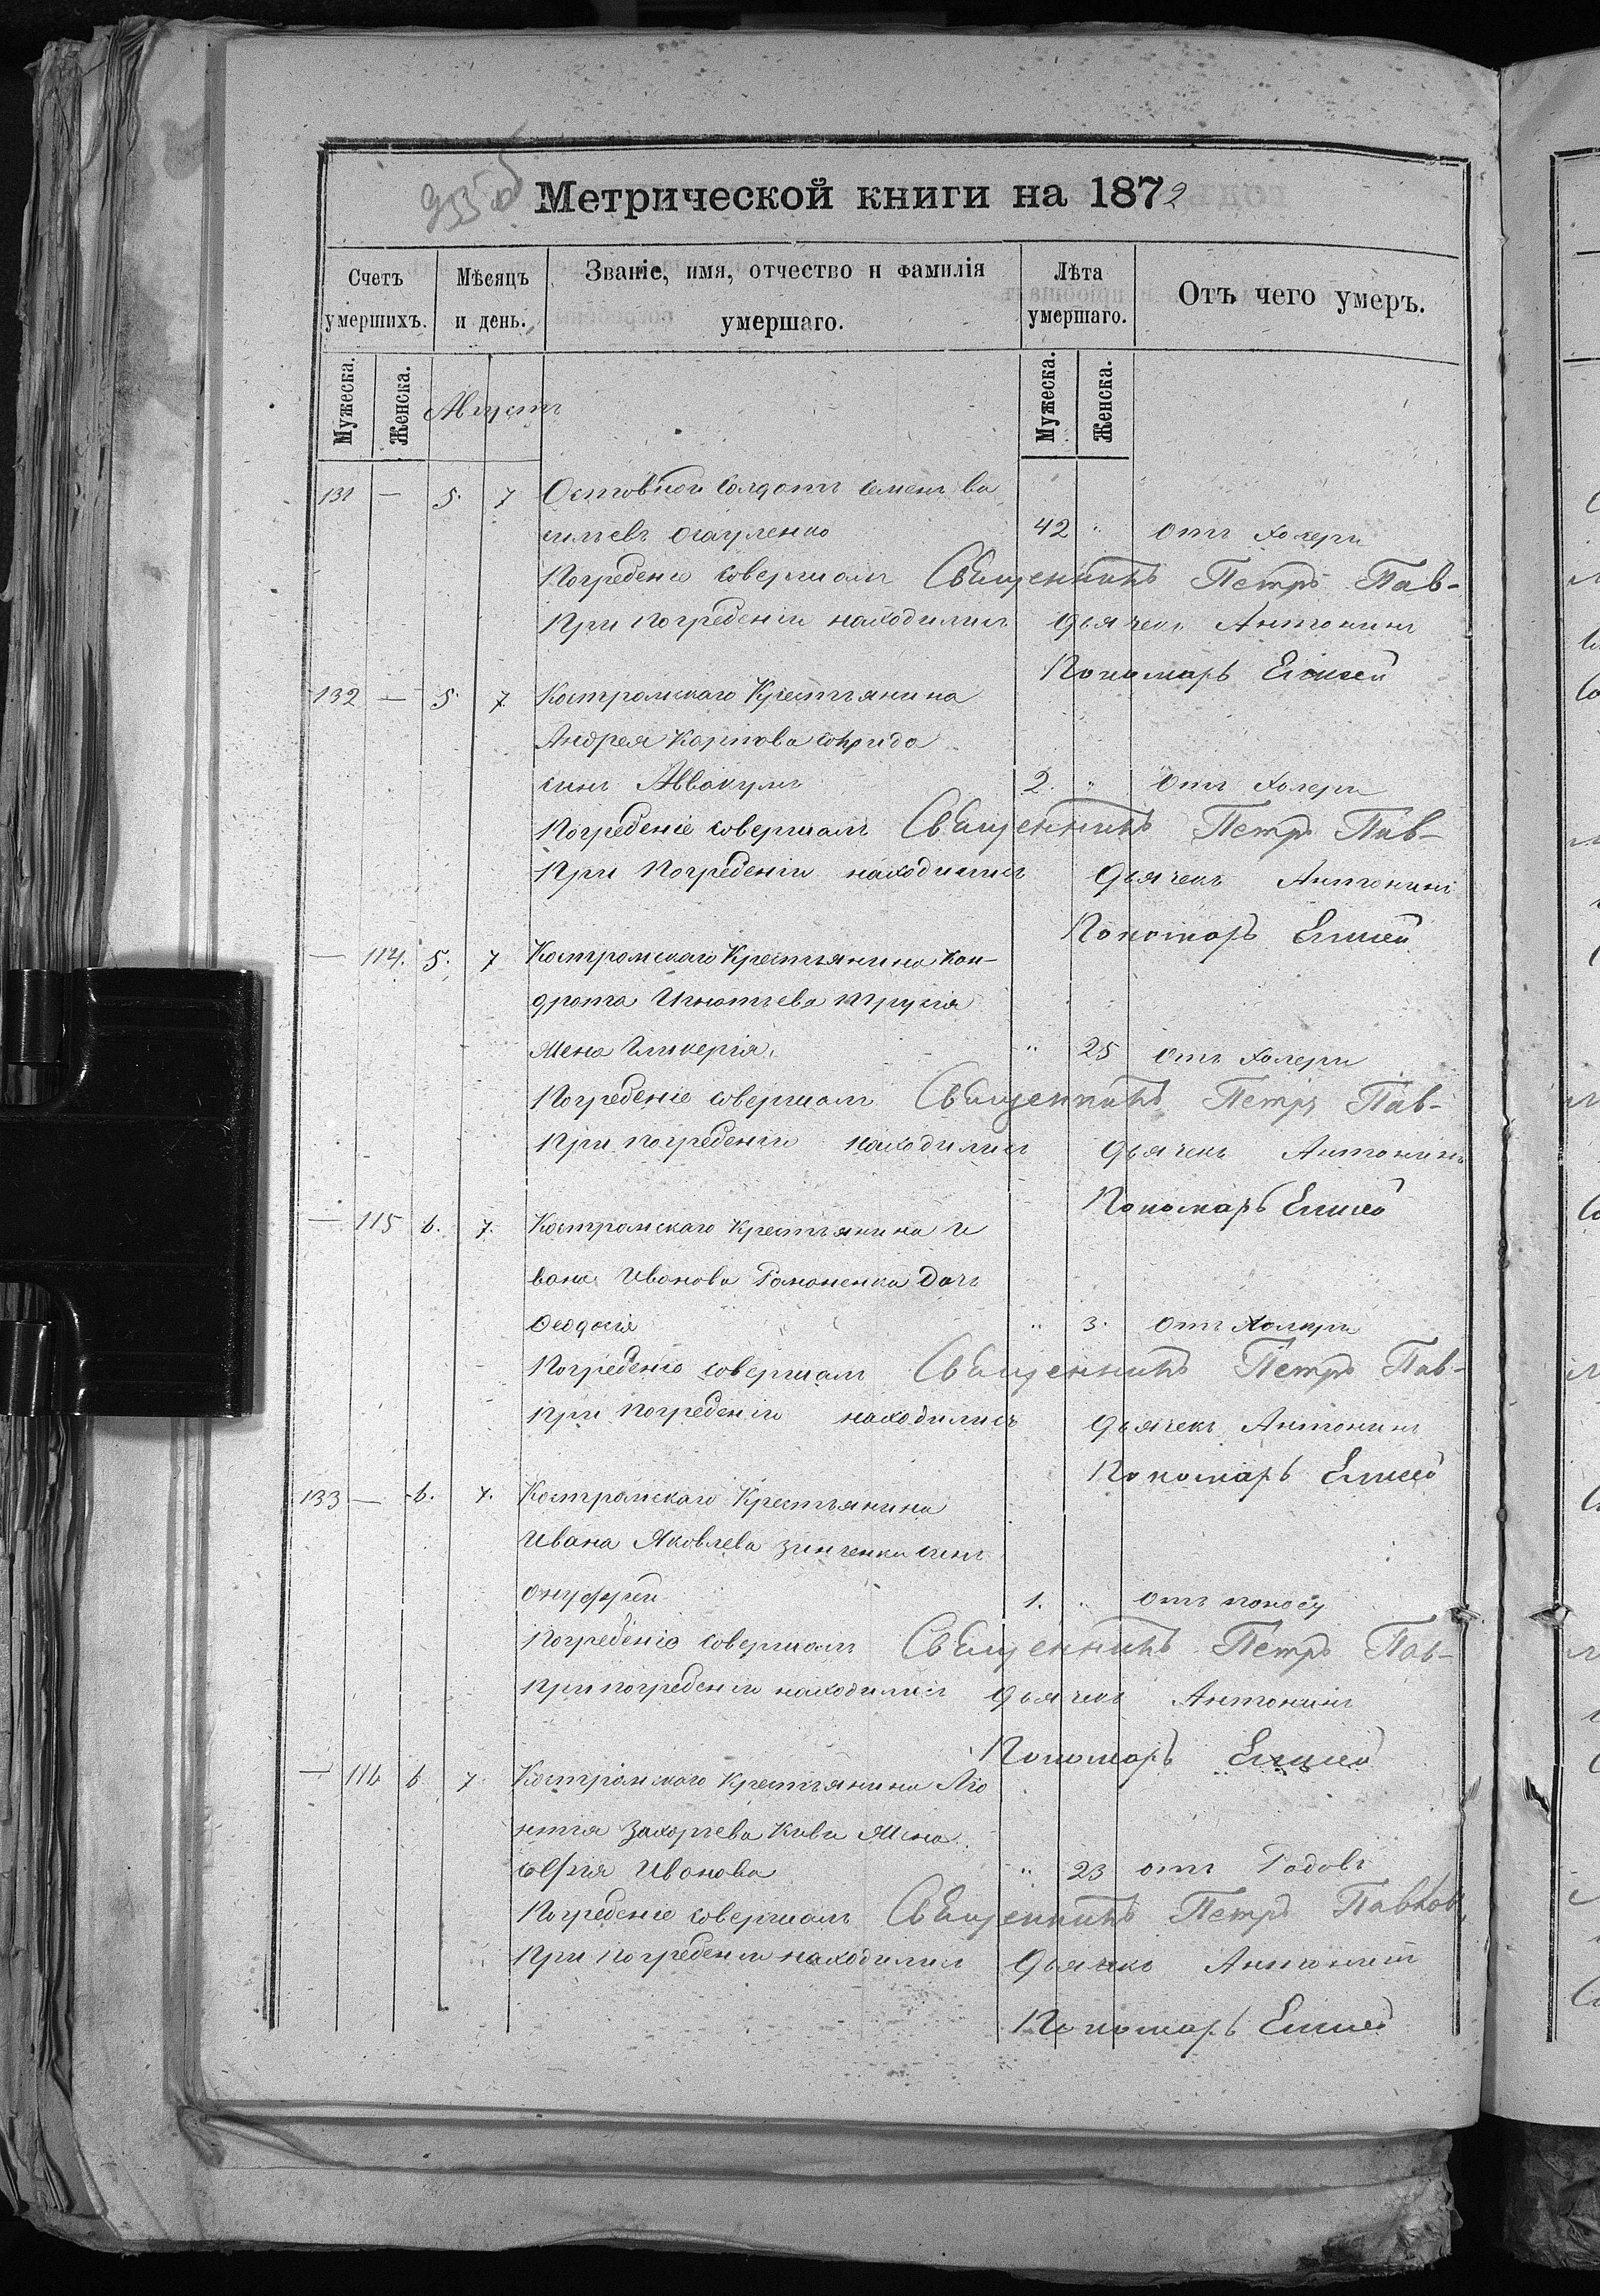 933 об
Метрической книги на 1872
Счетъ умершихъ.
Мѣсяцъ и день.
Званіе, имя, отчество и фамилія умершаго.
Лѣта умершаго.
Отъ чего умеръ.
Мужеска.
Женска.
Августъ
Мужеска.
Женска.
131 — 5. 7 солдатъ Семенъ Ва
сильевъ 42 " отъ холери
Погребеніе совершалъ Священникъ Петръ Пав-
При погребеніи находились дьячекъ Антонинъ
Пономарь Елисей
132 — 5. 7. Костромскаго Крестьянина
Андрея Карпова
синъ Аввакумъ 2. " отъ холери
Погребеніе совершалъ Священникъ Петръ Пав-
При погребеніи находились дьячекъ Антонинъ
Пономарь Елисей
— 114. 5. 7 Костромскаго Крестьянина Кон-
драта Игнатьева
жена Гликерія. " 25 отъ холери
Погребеніе совершалъ Священникъ Петръ Пав-
При погребеніи находились дьячекъ Антонинъ
Пономарь Елисей
— 115 6. 7. Костромскаго Крестьянина И
вана Иванова Романенка дочь
Феодосія " 3. отъ холери
Погребеніе совершалъ Священникъ Петръ Пав-
При погребеніи находились дьячекъ Антонинъ
Пономарь Елисей
133 — 6. 7. Костромскаго Крестьянина
Ивана Яковлева Зинченка синъ
Онуфрей 1. " отъ поносу
Погребеніе совершалъ Священникъ Петръ Пав-
При погребеніи находились дьячекъ Антонинъ
Пономарь Елисей
— 116 6 7. Костромскаго Крестьянина Лео
нтія Захарьева жена
Софія Иванова " 23 отъ Родовъ
Погребеніе совершалъ Священникъ Петръ Павлов
При погребеніи находились дьячекъ Антонинъ
Пономарь Елисей